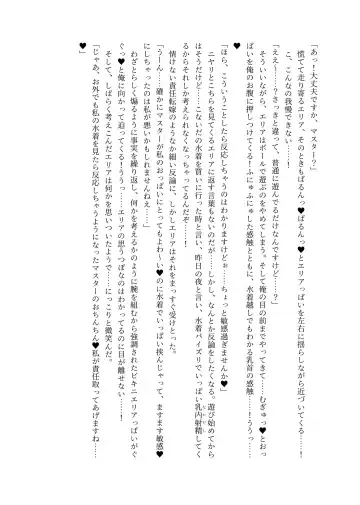 「あっ！大丈夫ですか、マスター？」
慌てて近寄るエリア、そのときもばるん♥ばるん♥とエリアっぱいを左右に揺らしながら近づいてくる……！
こ、こんなの我慢できない……！
「ええ～……？さっきと違って、普通に遊んでるだけなんですけど……？」
そういいながら、エリアはボールで遊ぶのをやめてしまう。そして俺の目の前までやってきて……むぎゅっ♥とおっ
ぱいを俺のお腹に押しつけてくる！ふにゅふにゅした感触とともに、水着越しでもわかる乳首の感触……ううっ……！
「ほら、こういうことしたら反応しちゃうのはわかりますけどぉ……ちょっと敏感過ぎませんか♥」
ニヤリとこちらを見てくるエリアに返す言葉もないのだが……しかし、なんとか反論をしたくなる。遊び始めてから
はそうだけど……こないだの水着を買いに行った時と言い、昨日の夜と言い、水着パイズリでいっぱい乳内射精してく
るからそれしかされてなくなっちゃってるんだぞ……！
情けない責任転嫁のようなか細い反論に、しかしエリアはそれをまっすぐ受けとった。
「うーん……確かにマスターが私のおっぱいにとってもよわ～い♥のに水着でいっぱい挟んじゃって、ますます敏感♥
にしちゃったのは私が悪いかもしれませんねえ……」
わざとらしく煽るように事実を繰り返し、何かを考えるかのように腕を組むから強調されたビキニエリアっぱいがぐ
ぐっ♥と俺に向かって迫ってくる！ううっ……エリアの思うつぼなのはわかってるのに目が離せない……！
そして、しばらく考えこんだエリアは何かを思いついたようで……にっこりと微笑んだ。
「じゃあ、お外でも私の水着を見たら反応しちゃうようになったマスターのおちんちん♥私が責任取ってあげますね……
♥」